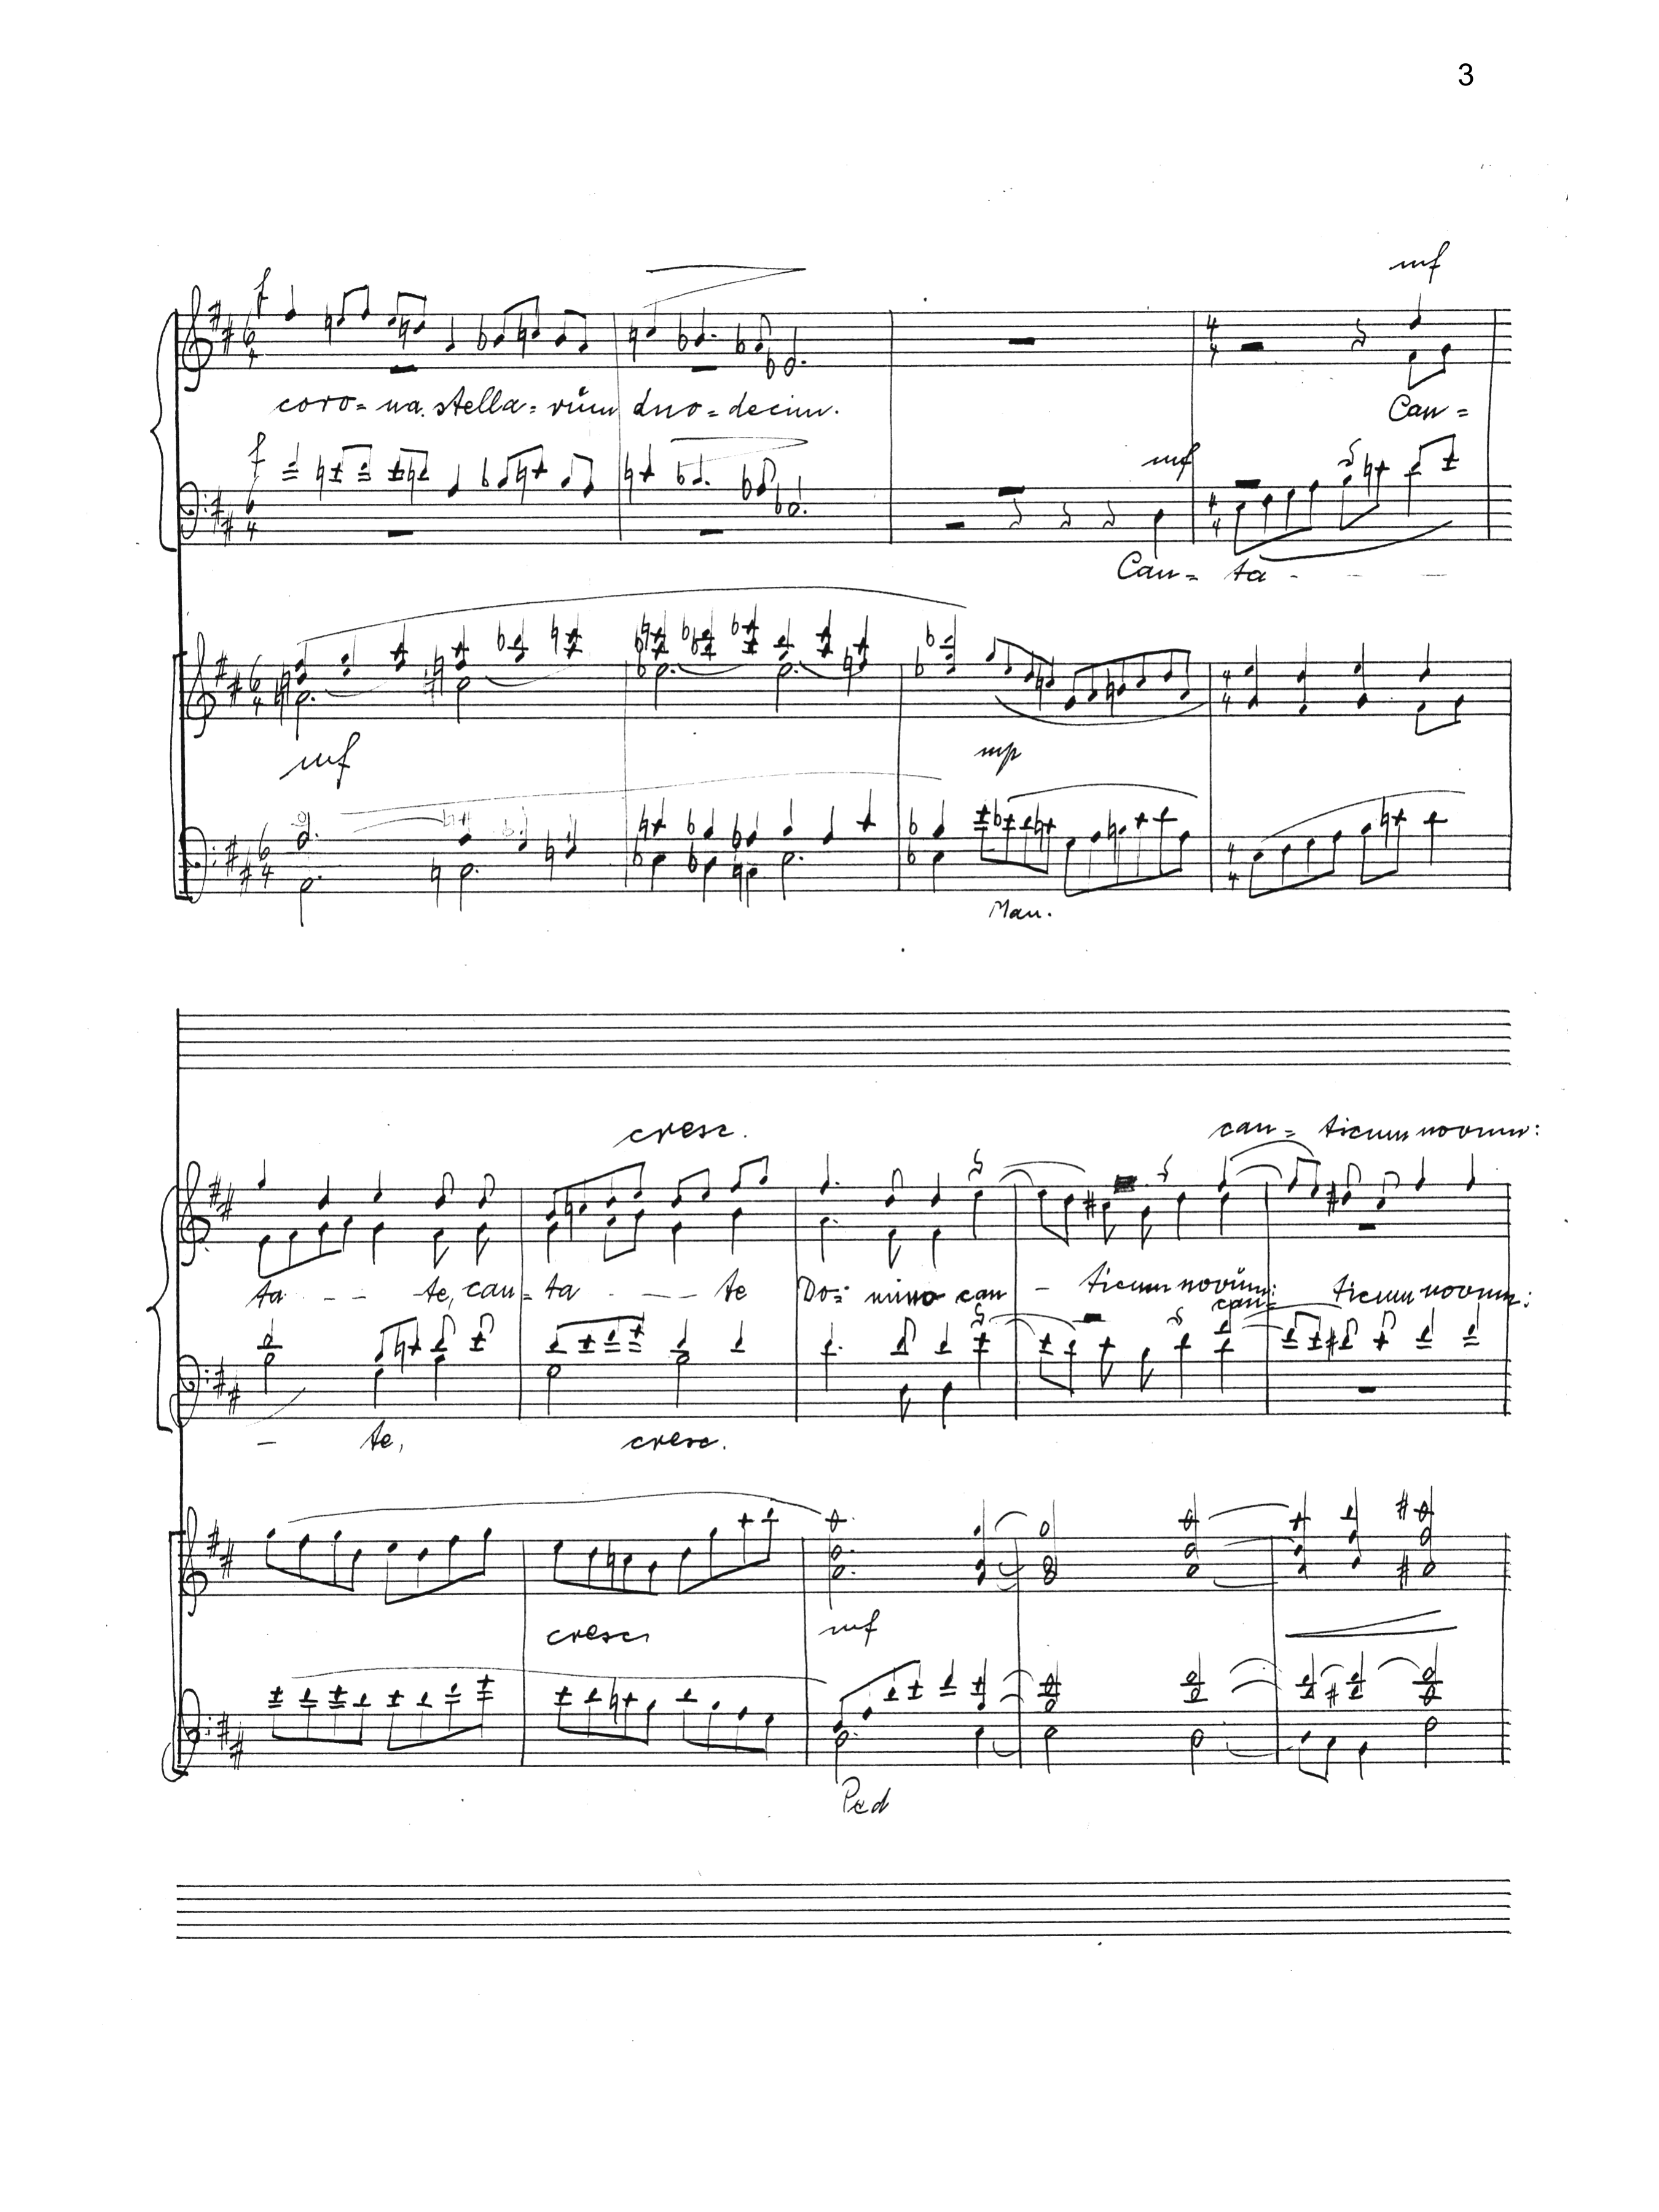 3
mf
f
coro= na. stella= rŭm duo= decim. Can=
f mf
Can= ta - - -
mf mp
Man.
cresc. can= ticum novum:
ta - - - te, can= ta - - - te Do= mino can - ticum novŭm: can= ticum novum:
- te, cresc.
cresc. mf
Ped